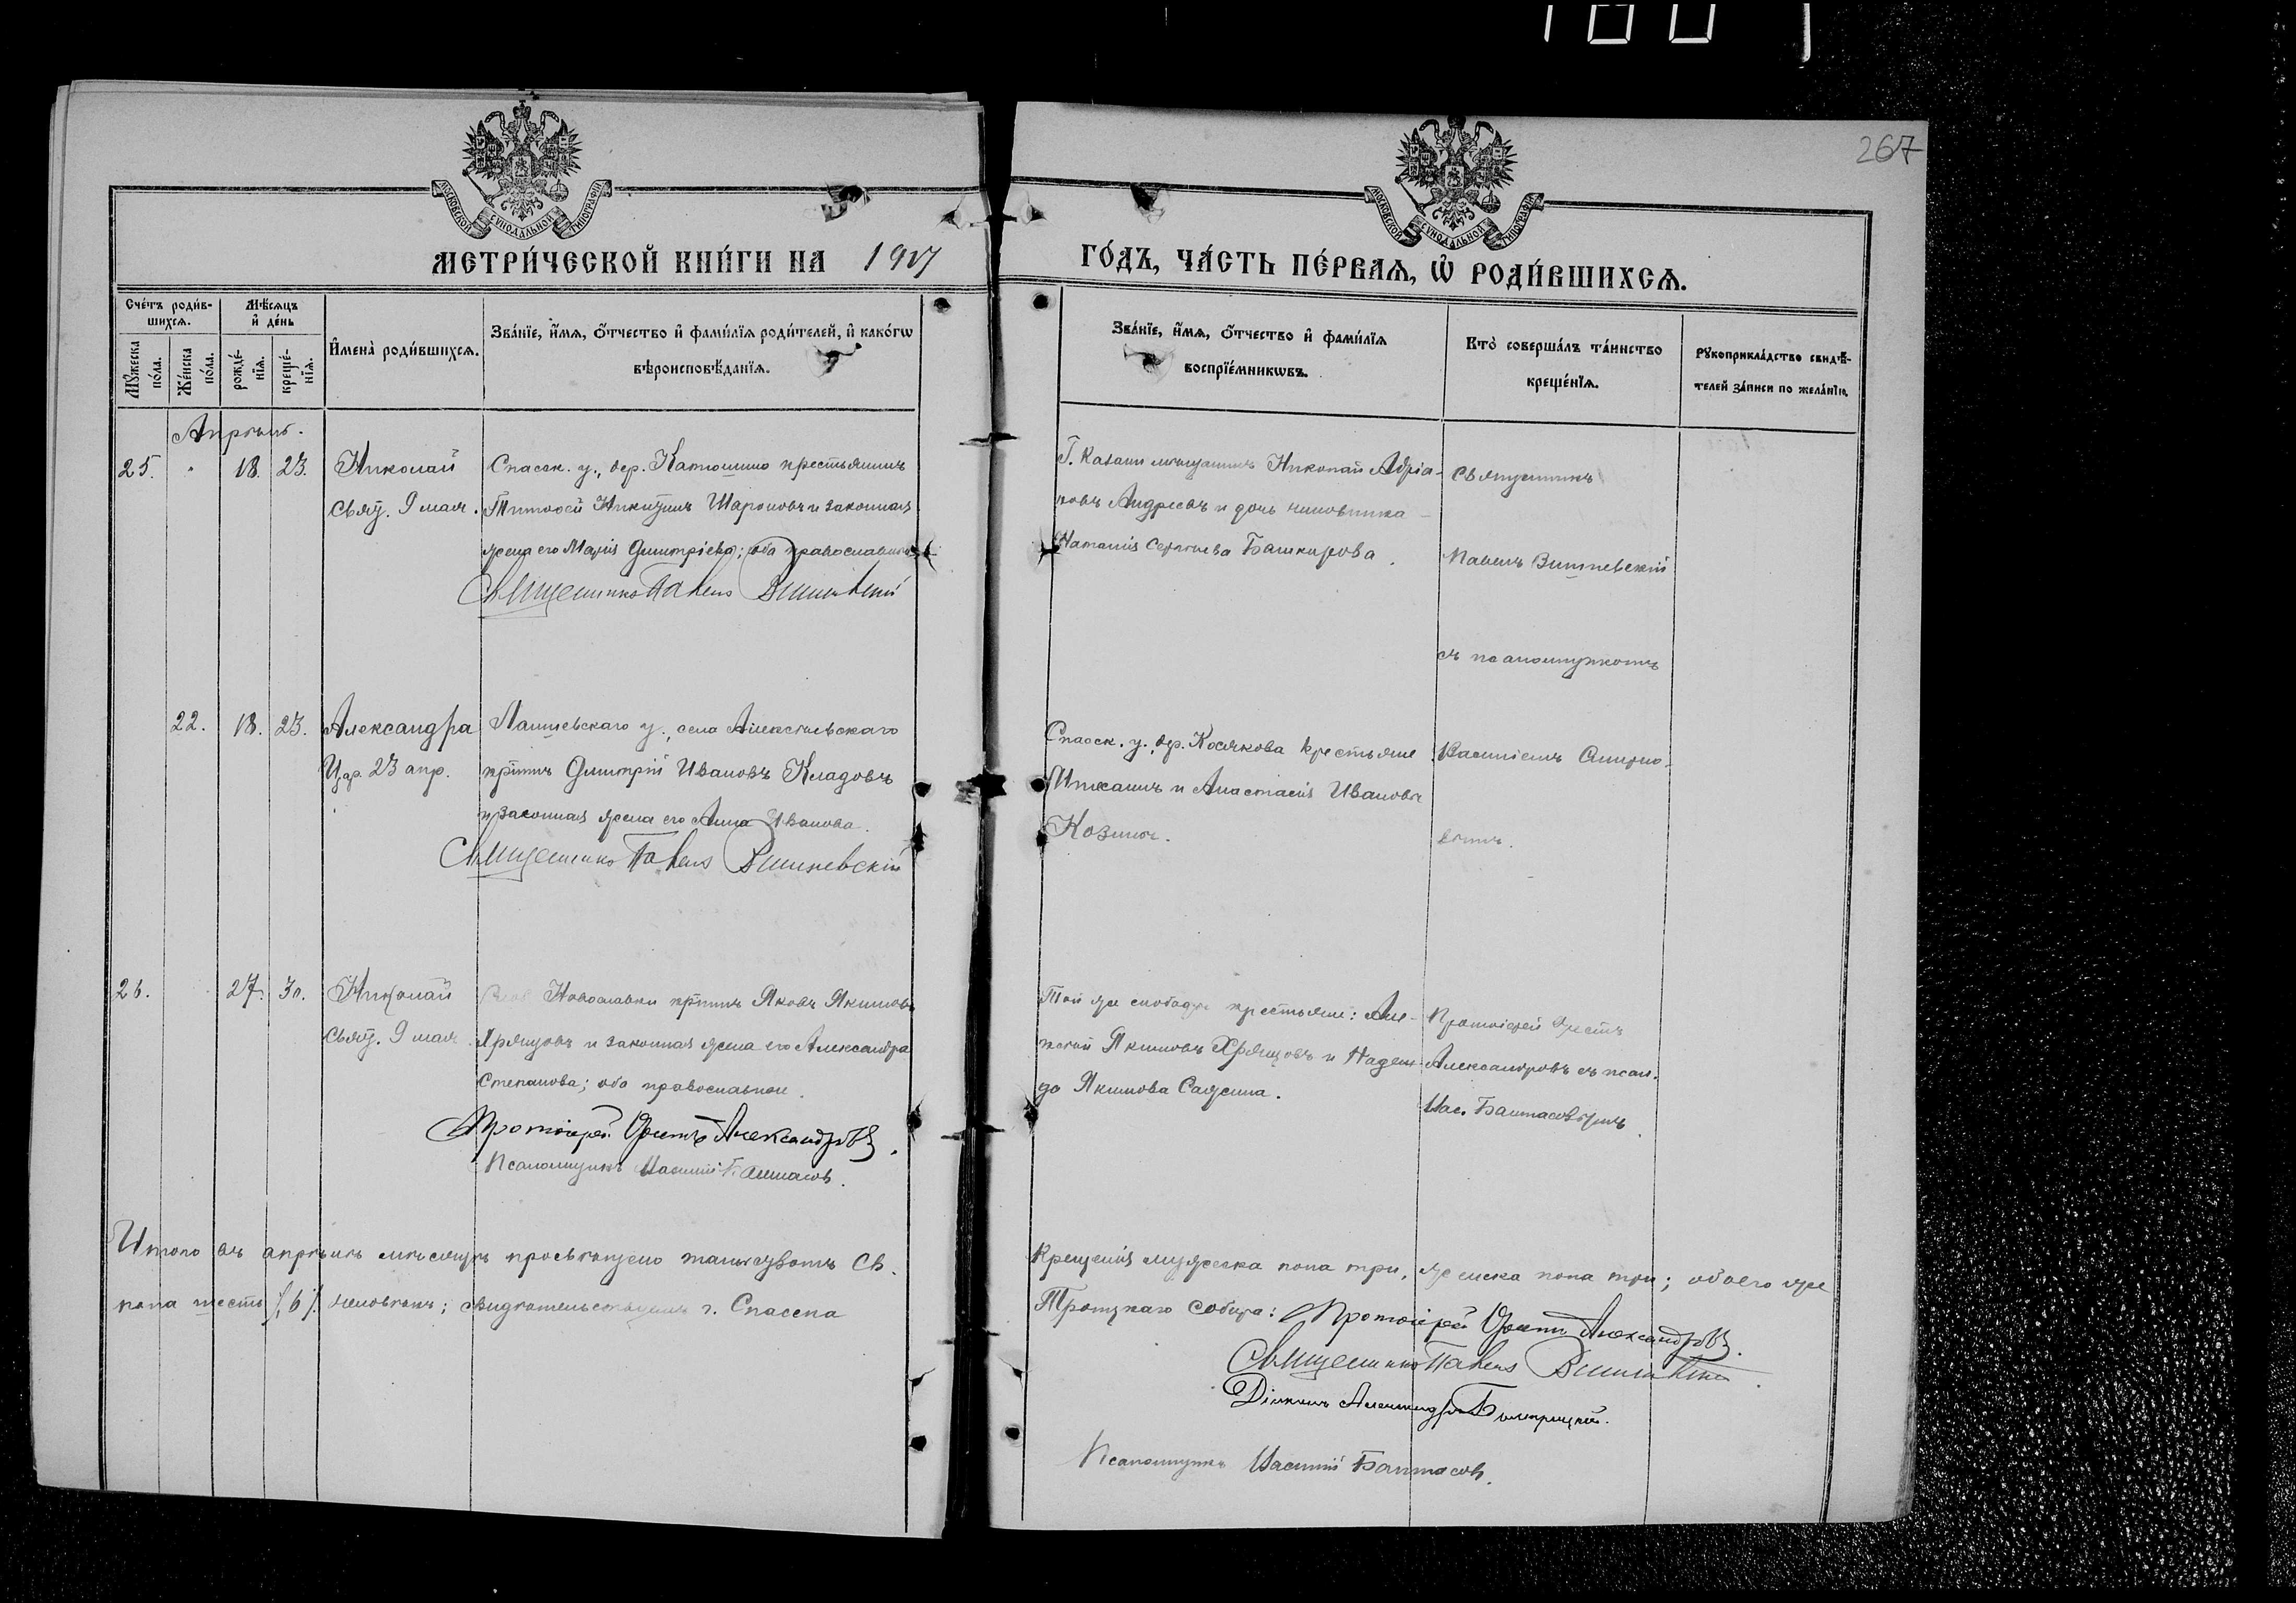 267
МОСКОВСКОЙ СѴНОДАЛЬНОЙ ТИПОГРАФІИ
МОСКОВСКОЙ СѴНОДАЛЬНОЙ ТИПОГРАФІИ
МЕТРИ́ЧЕСКОЙ КНИ́ГИ НА 1917
ГО́ДЪ, ЧА́СТЬ ПЕ́РВАѦ, Ѡ҆ РОДИ́ВШИХСѦ.
Сче́тъ роди́в-
шихсѧ.
Мѣ́сѧцъ
и҆ де́нь
Мꙋ́жеска
по́ла.
Же́нска
по́ла.
рожде́-
нїѧ.
креще́-
нїѧ.
И҆мена̀ роди́вшихсѧ.
Зва́нїе, и҆́мѧ, ѻ҆́тчество и҆ фами́лїѧ роди́телей, и҆ како́гѡ
вѣроисповѣ́данїѧ.
Зва́нїе, и҆́мѧ, ѻ҆́тчество и҆ фами́лїѧ
воспрїе́мникѡвъ.
Кто̀ соверша́лъ та́инство
креще́нїѧ.
Рꙋкоприкла́дство свидѣ́-
телей за́писи по жела́нїю.
Апрѣль.
25. 18. 23. Николай
Свят. 9 мая.
Спасск. у., дер. крестьянинъ
Тимофей Никитинъ Шароновъ и законная
жена его Марія Димитріева; оба православные
Священникъ Павелъ Вишневскій
Г. Казани мѣщанинъ Николай Адріа-
новъ Андреевъ и дочь чиновника
Наталія Сергѣева Башкирова.
Священникъ
Павелъ Вишневскій
съ псаломщикомъ
22. 18. 23. Александра
Цар. 23 апр.
Лаишевскаго у., села Алексѣевскаго
кр-нинъ Димитрій Ивановъ Кладовъ
и законная жена его Анна Иванова.
Священникъ Павелъ Вишневскій
Спасск. у., дер. Кожакова крестьяне
и Анастасія Ивановы
Козины.
Василіемъ Смирно-
вымъ.
26. 27. 30. Николай
Свят. 9 мая.
Новославки кр-нинъ Яковъ Якимовъ
Хрящовъ и законная жена его Александра
Степанова; оба православные.
Протоіерей Орестъ Александровъ.
Псаломщикъ Василій Балтасовъ.
Той же слободы крестьяне: Але-
ксѣй Якимовъ Хрящовъ и Надеж-
да Якимова Сажина.
Протоіерей Орестъ
Александровъ съ псал.
Вас. Балтасовымъ.
Итого въ апрѣлѣ мѣсяцѣ просвѣщено таинствомъ Св.
Крещенія мужеска пола три, женска пола три; обоего же
пола шесть (6) человѣкъ; г. Спасска
Троицкаго собора: Протоіерей Орестъ Александровъ.
Священникъ Павелъ Вишневскій.
Діаконъ Александръ
Псаломщикъ Василій Балтасовъ.